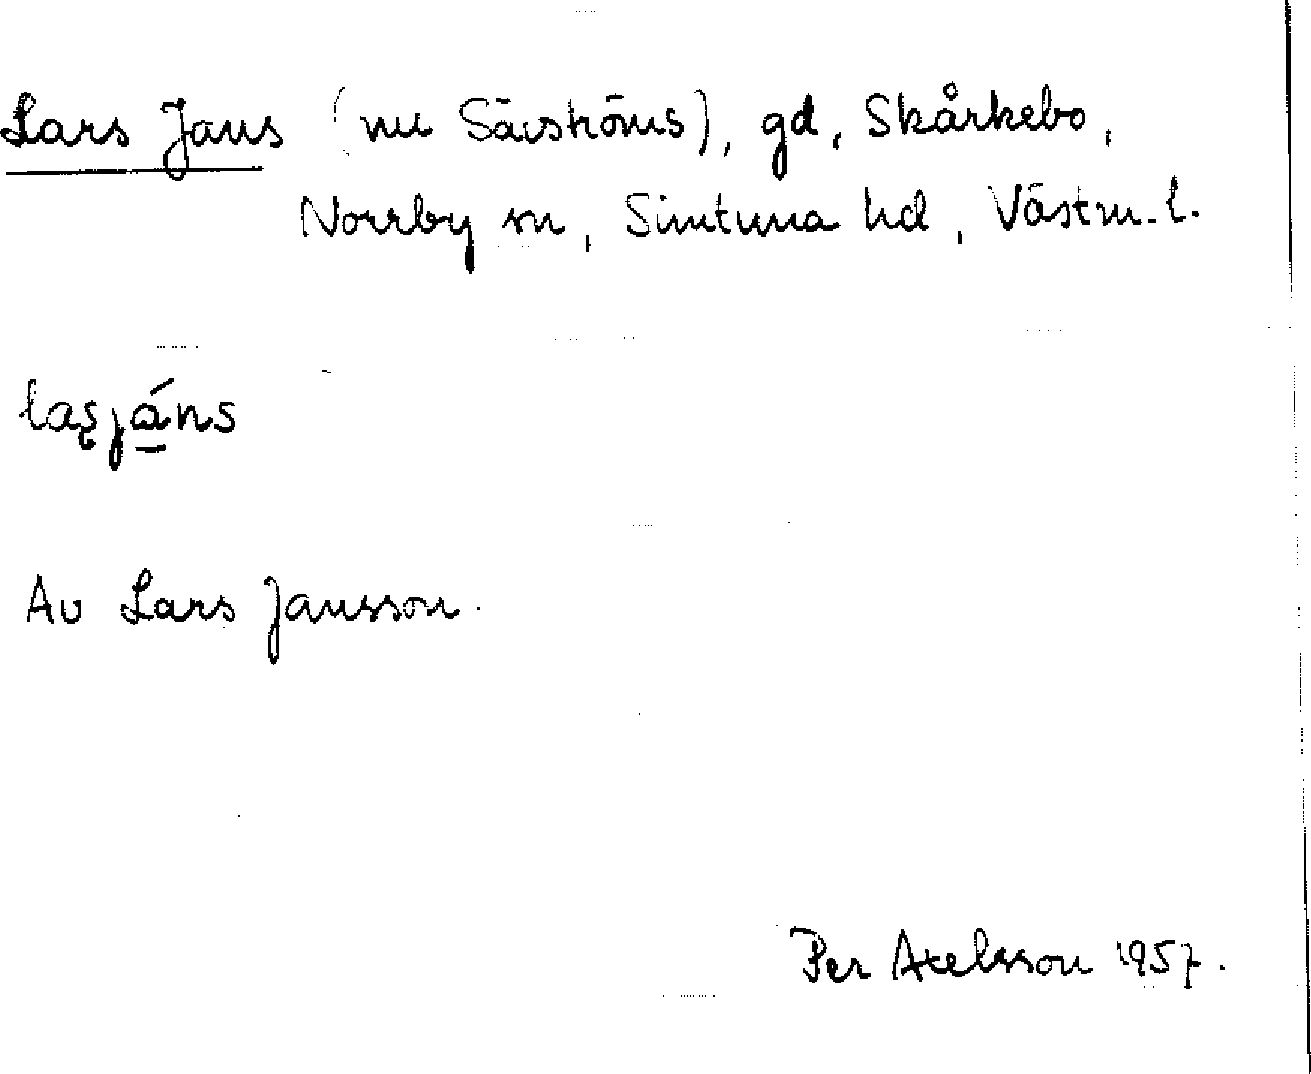 Lars Jans (nu Sävströms), gd, Skårkebo,
Norrby sn, Simtuna hd, Västm. l.
laşjá̱ns
Av Lars Jansson.
Per Axelsson 1957.